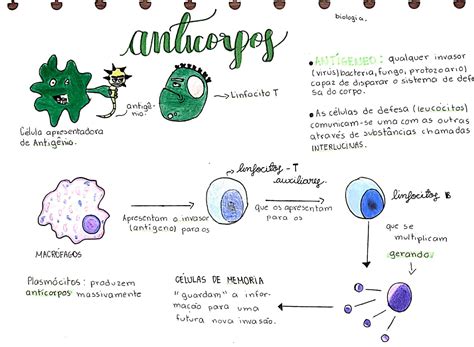 biologia.
anticorpos
• ANTÍGENEO: qualquer invasor
(vírus, bactéria, fungo, protozoario)
capaz de disparar o sistema de defe
sa do corpo.
antigê
nio.
Linfocito T
Célula apresentadora
de Antigênio.
• As células de defesa (leucócitos)
comunicam-se uma com as outras
através de substâncias chamadas
INTERLUCINAS.
linfocitos - T
auxiliares
Apresentam o invasor
(antígeno) para os
que os apresentam
para os
linfócitos B
MACRÓFAGOS
que se
multiplicam
gerando
Plasmócitos: produzem
anticorpos massivamente
CÉLULAS DE MEMORIA
"guardam" a infor
mação para uma
futura nova invasão.